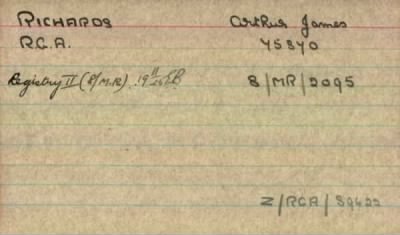 RICHARDS Arthur James
R.G.A. 75370
Registry II (8/M.R.) 19
8/MR/2095
Z/RGA/59622